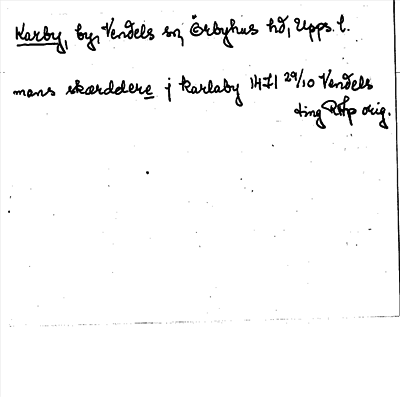 Karby, by, Vendels sn, Örbyhus hd, Upps. l.
mans skærddere j karlaby 1471 29/10 Vendels
ting RAp orig.